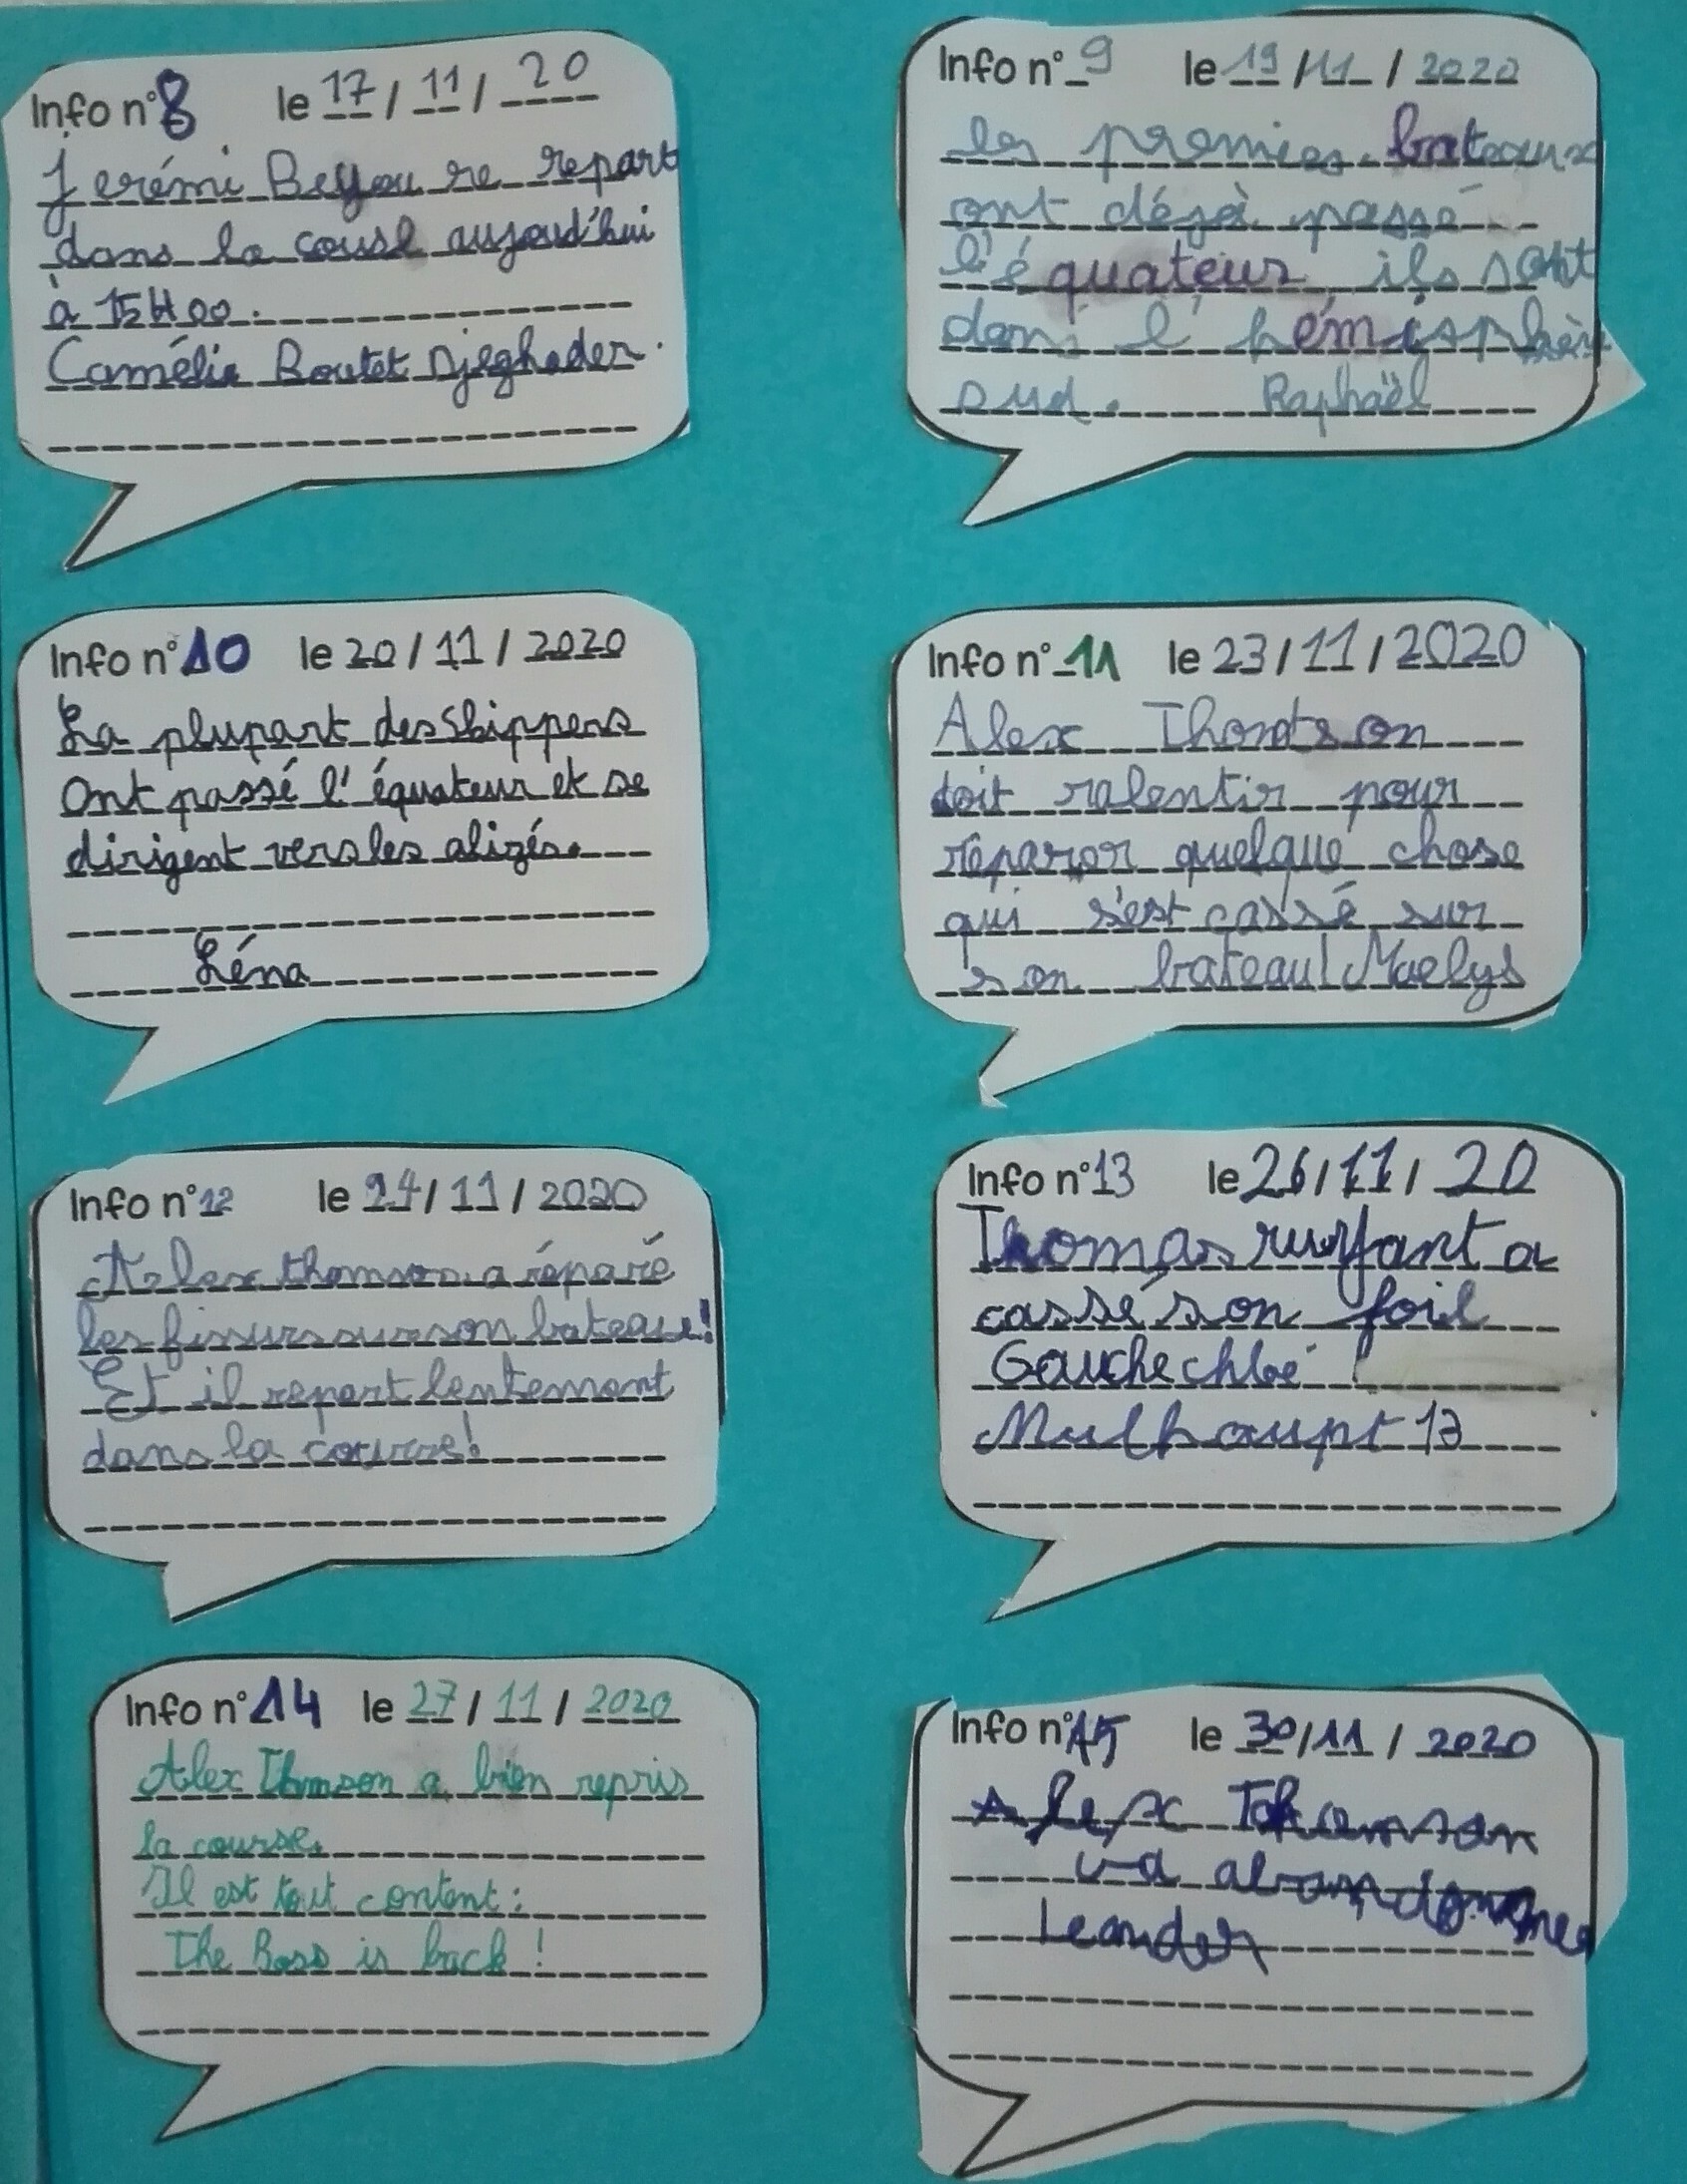 Info n°8 le 17/11/20
Jerémi Beyou re repart
dans la course aujoud'hui
à 15H00.
Camélia Boutet Djeghader.
Info n°9 le 19/11/2020
les premies bateaux
ont déjà passé
l'équateur ils sont
dans l'hémisphère
sud. Raphaël
Info n°10 le 20/11/2020
La plupart des Skippers
Ont passé l'équateur et se
dirigent vers les alizés.
Léna
Info n°11 le 23/11/2020
Alex Thomson
doit ralentir pour
réparer quelque chose
qui s'est cassé sur
son bateau! Maelys
Info n°12 le 24/11/2020
Alex thomson a réparé
les fissurs sur son bateau!
Et il repart lentement
dans la course!
Info n°13 le 26/11/20
Thomas ruyfant a
cassé son foil
Gauche chloé !
Mulhaupt 13
Info n°14 le 27/11/2020
Alex Thmson a bien repris
la course.
Il est tout content:
The Boss is back!
Info n°15 le 30/11/2020
Alex Thomson
va abandonner
Leander